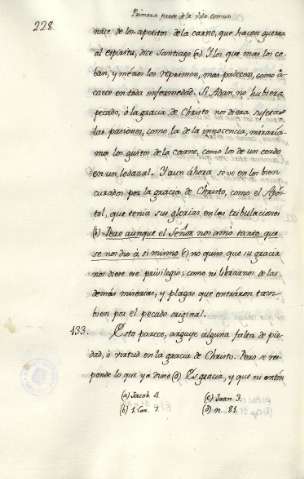 228.
Primera parte de la vida comun
nace de los apetitos de la carne, que hacen guerra
al espiritu, dice Santiago (a) Y los que mas los ce-
ban, y menos los reprimen, mas padecen, como a-
caece en toda enfermedad. Si Adan no hubiera
pecado, ô la gracia de Christo nos diera
las pasiones, como la de la innocencia, mirariamos
los gustos de la carne, como los de un cerdo
en un lodazal. Y aun ahora se ve en los bien
curados por la gracia de Christo, como el Após-
tol, que tenia sus glorias en las tribulaciones
(b) Pero aunque el Señor nos amó tanto, que
se nos dió à si mismo (c) no quiso que su gracia
nos diese este privilegio, como ni librarnos de las
demás miserias, y plagas que entráron tam-
bien por el pecado original.
133. Esto parece, arguye alguna falta de pie-
dad, ô virtud en la gracia de Christo. Pero se res-
ponde lo que ya dixe (d) Es gracia, y que ni entón
(a) Jacob. 4. (c) Joan 3.
(b) 2 Cor. 7. (d) n. 81.